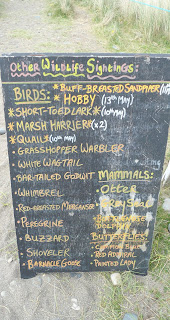 Other Wildlife Sightings:
BIRDS: *BUFF-BREASTED SANDPIPER
*HOBBY (13th MAY)
*SHORT-TOED LARK* (10th MAY)
*MARSH HARRIER* (x2)
*QUAIL* (10th MAY)
• GRASSHOPPER WARBLER
• WHITE WAGTAIL
• BAR-TAILED GODWIT
• WHIMBREL
• RED-BREASTED MERGANSER
• PEREGRINE
• BUZZARD
• SHOVELER
• BARNACLE GOOSE
MAMMALS:
• Otter
• Grey Seal
• BOTTLENOSE DOLPHIN
BUTTERFLIES
• COMMON BLUE
• RED ADMIRAL
• PAINTED LADY